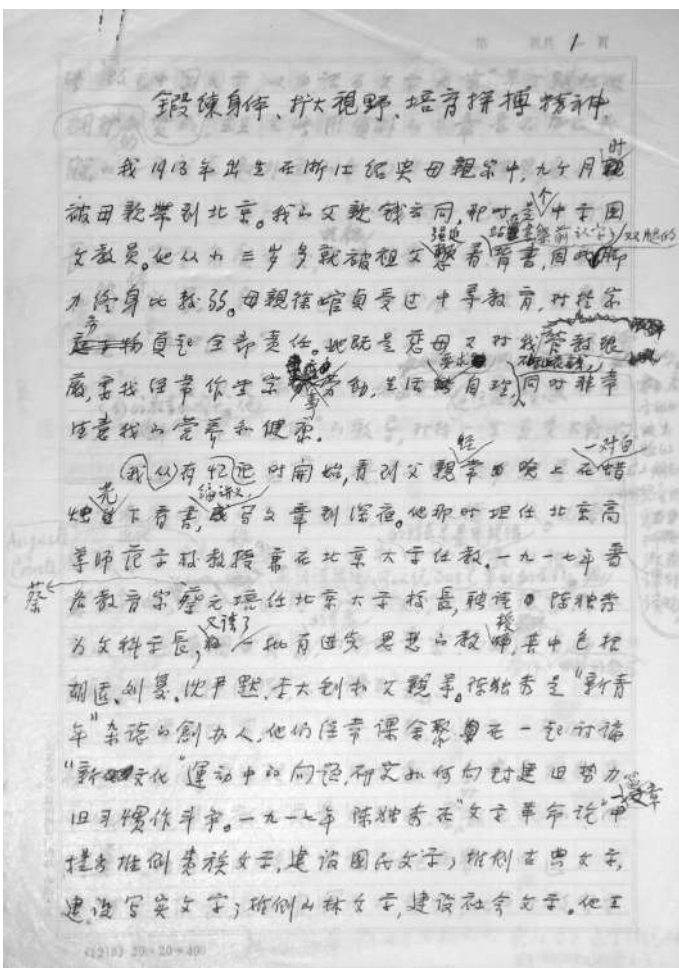 1
鍛練身体、扩大視野、培育拼搏精神
我1913年出生在浙江紹興母親家中,九个月时
被母親帶到北京。我的父親錢玄同,那时是个中学国
文教員。他从小三岁多就被祖父强迫站在書架前认字,背書,因此双腿的脚
力终身比較弱。母親徐婠貞受过中等教育,对於家
方負起全部責任。她既是慈母又对我管教很
嚴,要我经常作些家事劳动,生活要求自理,同时非常
注意我的营养和健康。
我从有记忆时開始,看到父親经常晚上在一对白蜡
烛光下看書,编讲义,或写文章到深夜。他那时担任北京高
等师范学校教授兼在北京大学任教。一九一七年著
名教育家蔡元培任北京大学校長,聘请陈独秀
为文科学長,又请了一批有進步思想的教授,其中包括
胡适、刘复、沈尹默、李大钊和父親等。陈独秀是"新青
年"杂誌的創办人,他们经常課余聚在一起讨論
"新文化"運动中的问题,研究如何向封建旧势力
旧习慣作斗争。一九一七年陈独秀在"文学革命論"中
提出推倒贵族文学,建设国民文学;推倒古典文学,
建设写实文学;推倒山林文学,建设社会文学。他主
蔡
(1218) 20×20=400